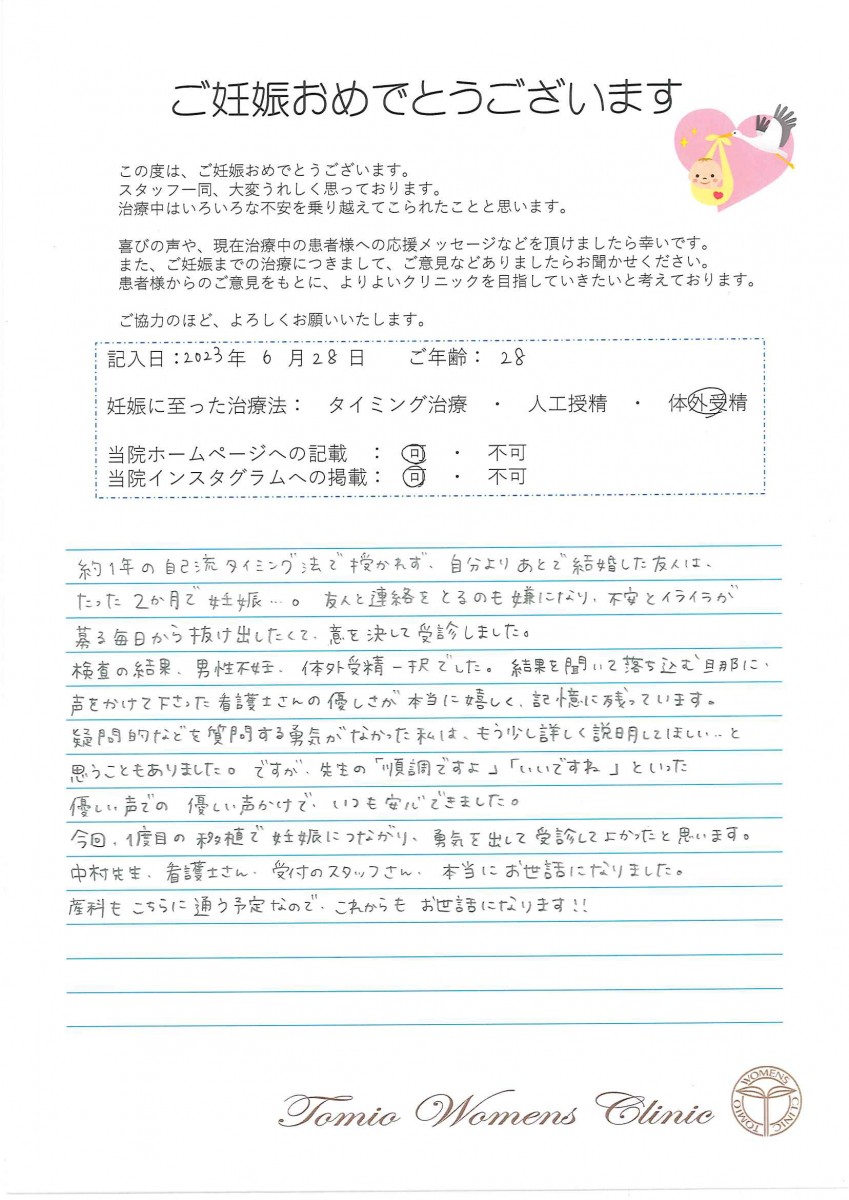 ご妊娠おめでとうございます
この度は、ご妊娠おめでとうございます。
スタッフ一同、大変うれしく思っております。
治療中はいろいろな不安を乗り越えてこられたことと思います。
喜びの声や、現在治療中の患者様への応援メッセージなどを頂けましたら幸いです。
また、ご妊娠までの治療につきまして、ご意見などありましたらお聞かせください。
患者様からのご意見をもとに、よりよいクリニックを目指していきたいと考えております。
ご協力のほど、よろしくお願いいたします。
記入日：2023年 6 月28日 ご年齢： 28
妊娠に至った治療法： タイミング治療 ・ 人工授精 ・ 体外受精
当院ホームページへの記載 ： 可 ・ 不可
当院インスタグラムへの掲載： 可 ・ 不可
約1年の自己流タイミング法で授かれず、自分よりあとで結婚した友人は、
たった2か月で妊娠…。 友人と連絡をとるのも嫌になり、不安とイライラが
募る毎日から抜け出したくて、意を決して受診しました。
検査の結果、男性不妊、体外受精一択でした。結果を聞いて落ち込む旦那に、
声をかけて下さった看護士さんの優しさが本当に嬉しく、記憶に残っています。
疑問的などを質問する勇気がなかった私は、もう少し詳しく説明してほしい…と
思うこともありました。ですが、先生の「順調ですよ」「いいですね」といった
優しい声での 優しい声かけで、いつも安心できました。
今回、1度目の移植で妊娠につながり、勇気を出して受診してよかったと思います。
中村先生、看護士さん、受付のスタッフさん、本当にお世話になりました。
産科もこちらに通う予定なので、これからもお世話になります!!
Tomio Womens Clinic
TOMIO WOMENS CLINIC